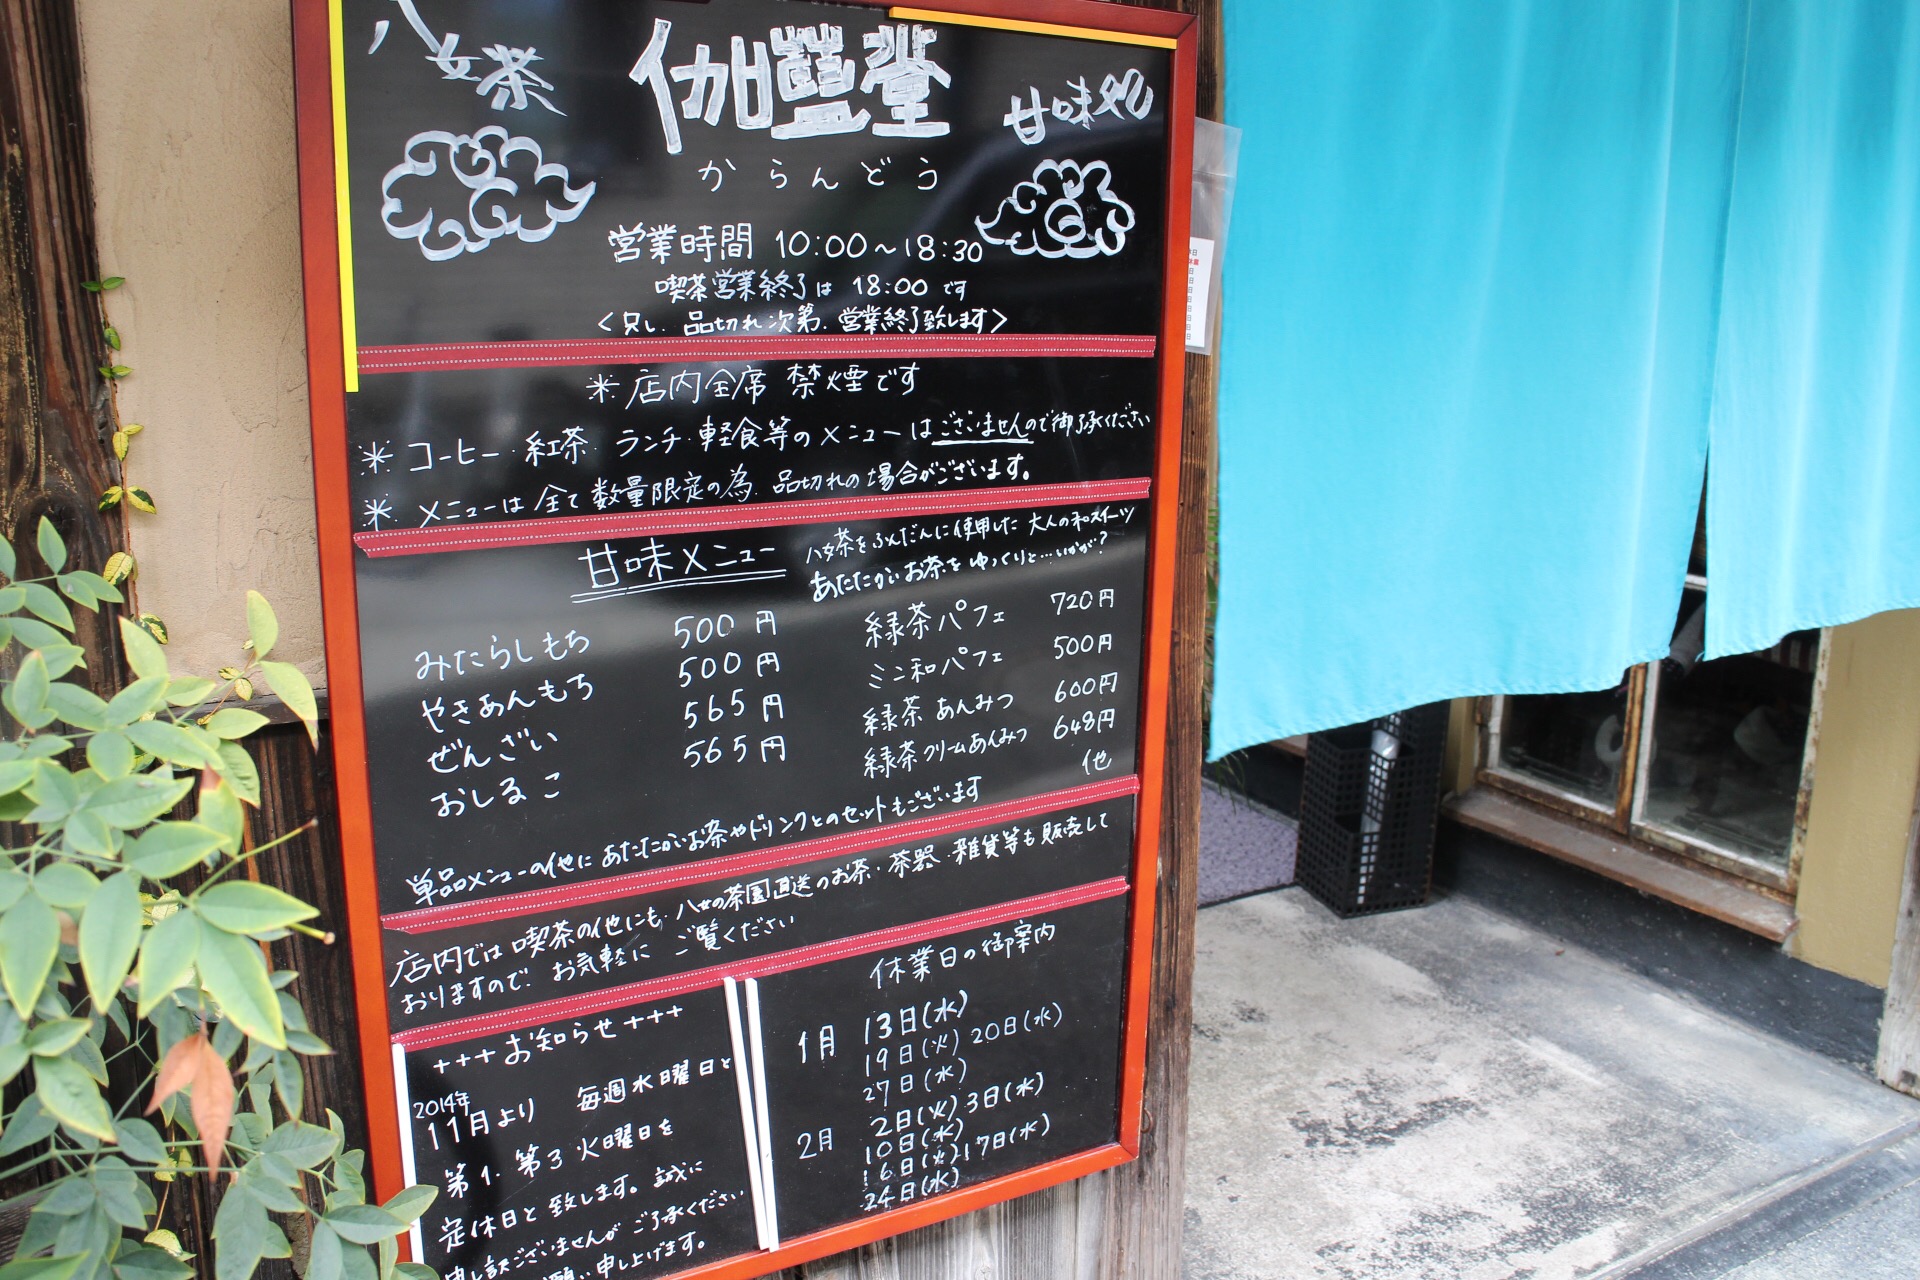 八女茶
伽藍堂
甘味処
からんどう
営業時間 10:00〜18:30
喫茶営業終了は 18:00 です
<只し、品切れ次第、営業終了致します>
＊店内全席 禁煙です
＊コーヒー・紅茶・ランチ・軽食等のメニューはございませんので御了承ください
＊メニューは全て数量限定の為、品切れの場合がございます。
甘味メニュー
八女茶をふんだんに使用した 大人の和スイーツ
あたたかいお茶を ゆっくりと…いかが?
みたらしもち 500円
やきあんもち 500円
ぜんざい 565円
おしるこ 565円
緑茶パフェ 720円
ミニ和パフェ 500円
緑茶あんみつ 600円
緑茶クリームあんみつ 648円
他
単品メニューの他に あたたかいお茶やドリンクとのセットもございます
店内では 喫茶の他にも、八女の茶園直送のお茶・茶器・雑貨等も販売して
おりますので、お気軽に ご覧ください
+++お知らせ+++
2014年
11月より 毎週水曜日と
第1、第3火曜日を
定休日と致します。誠に
申し訳ございませんが ご了承ください
お願い申し上げます。
休業日の御案内
1月 13日(水)
19日(火) 20日(水)
27日(水)
2月 2日(火) 3日(水)
10日(水)
16日(火) 17日(水)
24日(水)